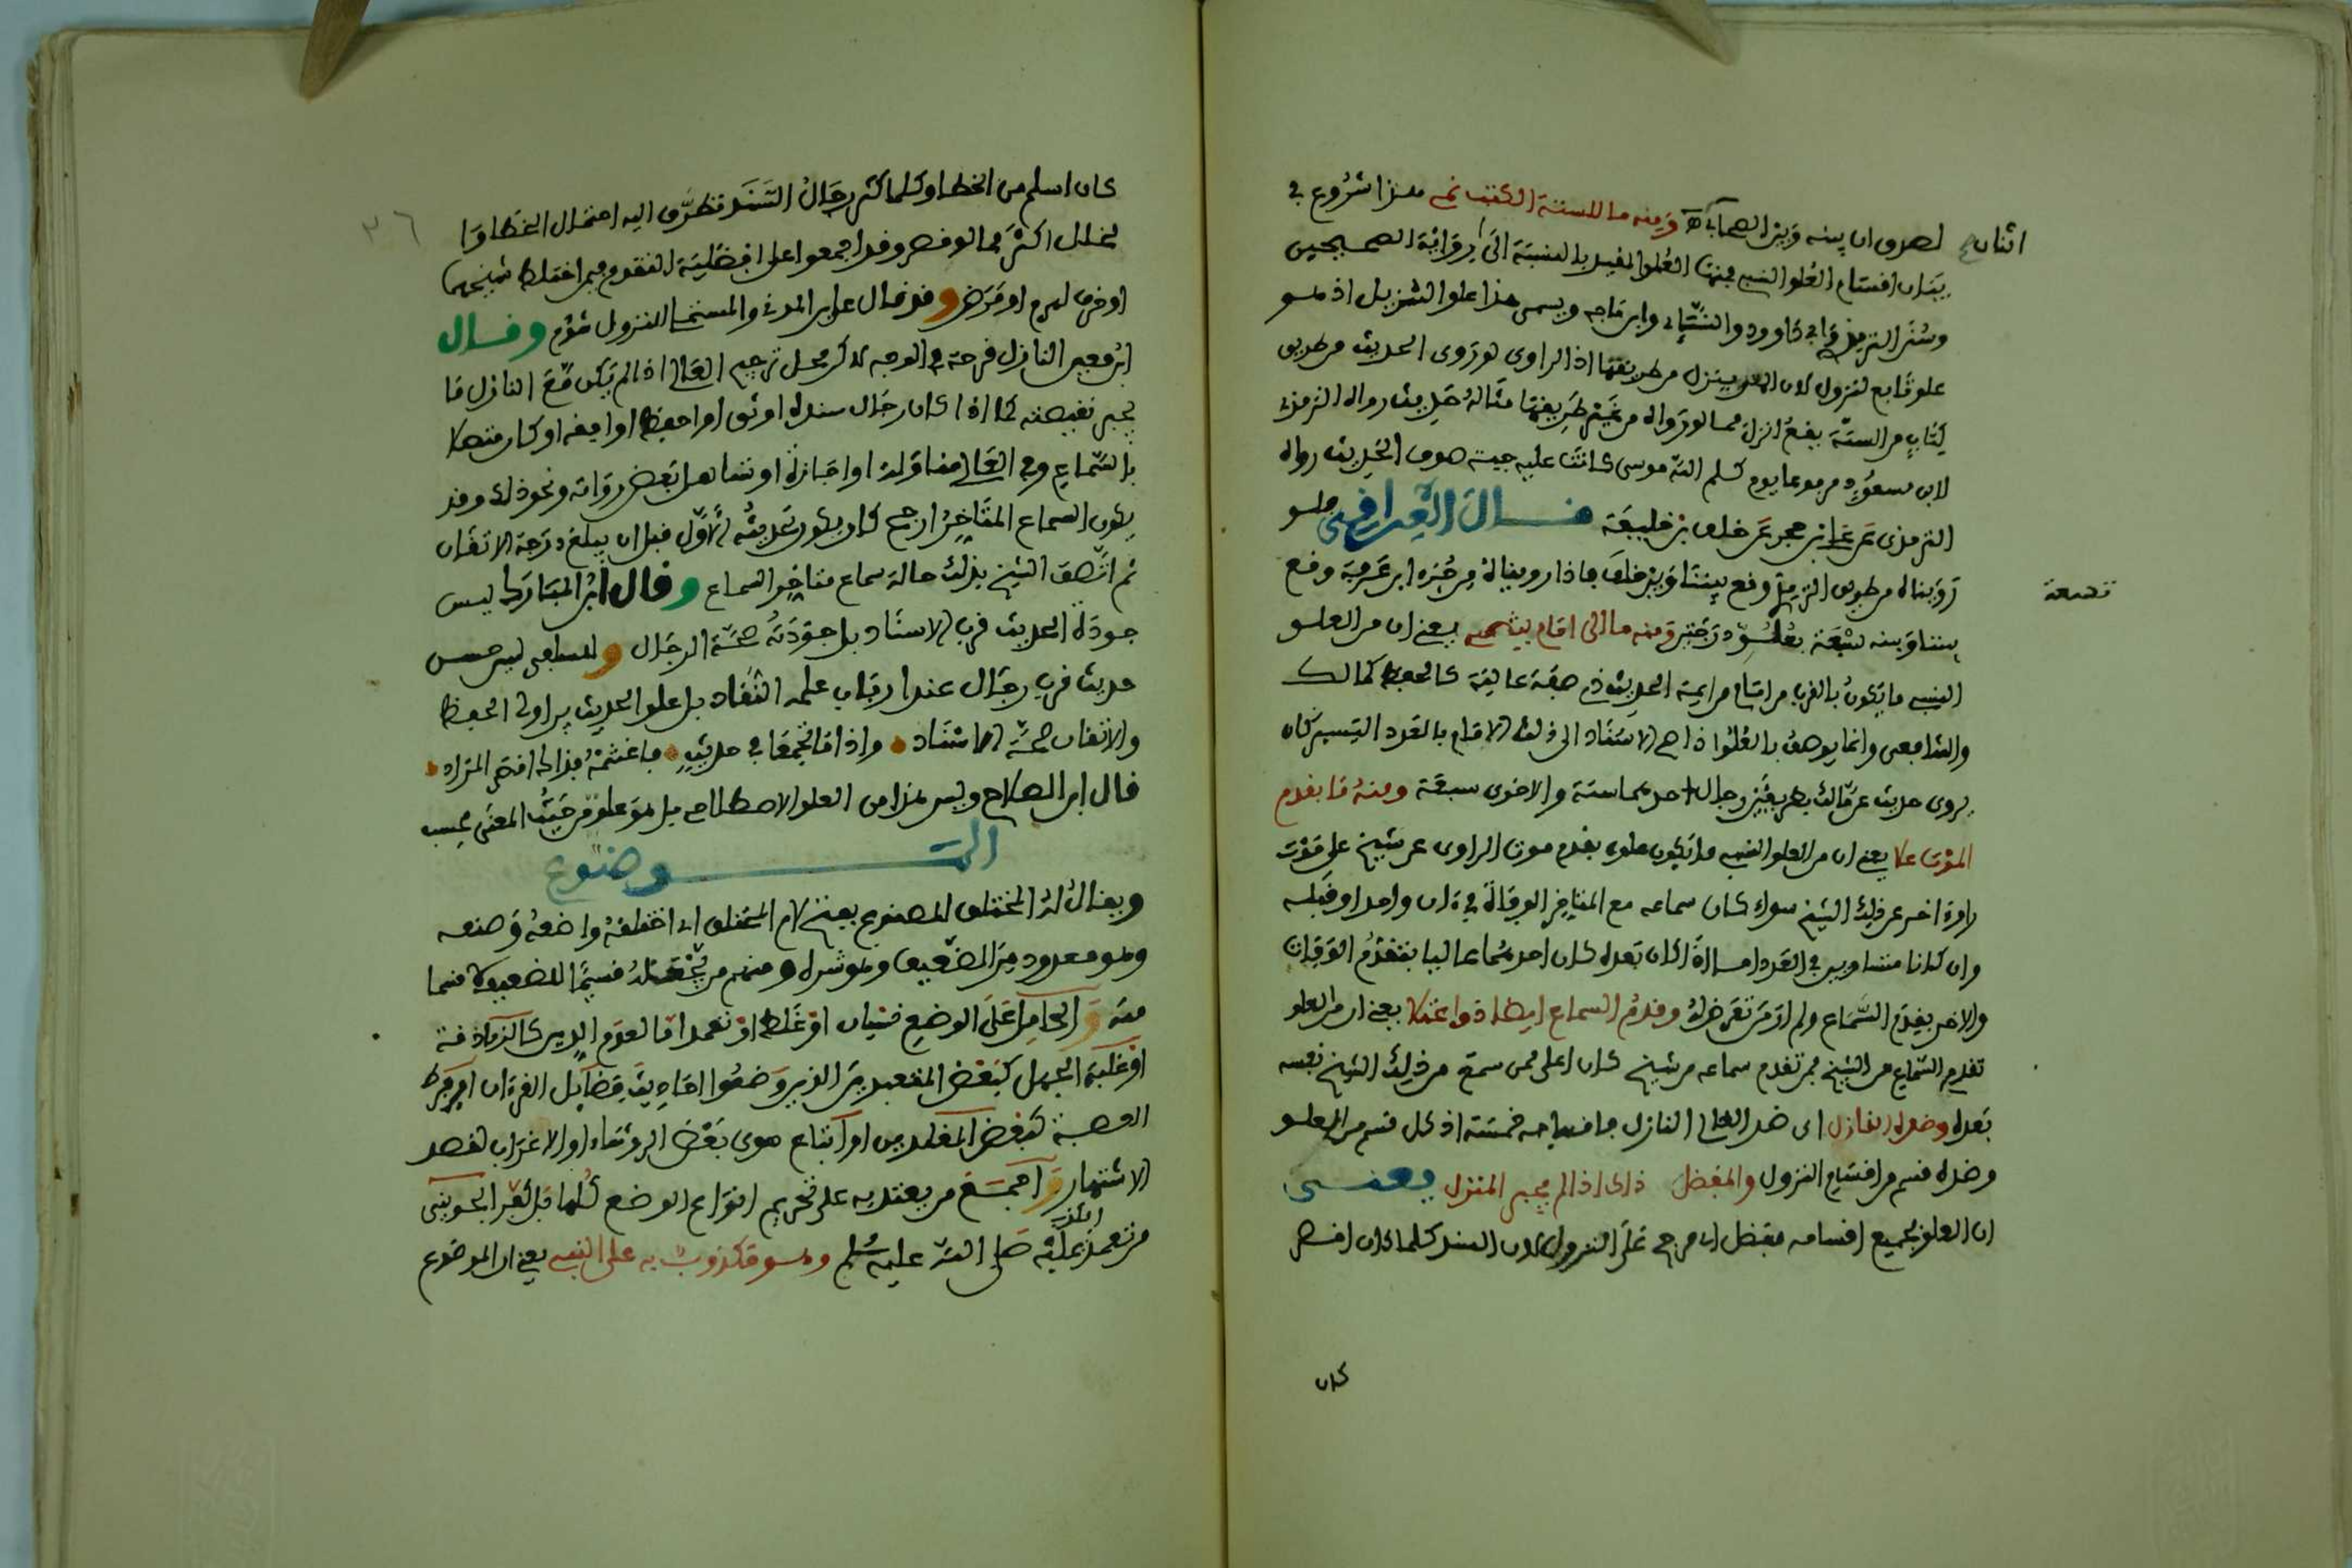 لصدق ان بينه وبين الصحابة ومنه ما للستة الكتب نمى هذا شروع في
اثنان
بيان اقسام العلو النسبي فمنها العلو المقيد بالنسبة الى رواية الصحيحين
وسنن الترمذي وابي داوود والنساي وابن ماجه ويسمى هذا علو التنزيل اذ هو
علو تابع لنزول لان الحديث ينزل من طريقها اذ الراوى لو روى الحديث من طريق
كتاب من الستة يقع انزل مما لو رواه من غير طريقها مثاله حديث رواه الترمذي
لابن مسعود مرفوعا يوم كلم الله موسى كانت عليه جبة صوف الحديث رواه
الترمذى عن علي بن حجر عن خلف بن خليفة قال العراقي فلو
رويناه من طريق الترمذي وقع بيننا وبين خلف فاذا رويناه من جزء ابن عرفة وقع
تسعة
بيننا وبينه سبعة بعلو درجتين ومنه ما الى امام ينتمى يعني ان من العلو
النسبي ما يكون بالقرب من امام من ايمة الحديث ذي صفة عالية كالحفظ كمالك
والشافعى وانما يوصف بالعلو اذا صح الاسناد الى ذلك الامام بالعدد اليسير كان
يروى حديث عن مالك بطريقين رجال احدهما ستة والاخرى سبعة ومنه ما بقدم
الموت علا يعني ان من العلو النسبي ما يكون علوه بقدم موت الراوى عن شيخ على موت
راو اخر عن ذلك الشيخ سواء كان سماعه مع المتاخر الوفاة في ءان واحد او قبله
وان كانا متساويين في العدد
والاخر بقدم السماع ولم ار من تعرض له وقدم السماع ايضا ذو اعتلا يعني ان من العلو
تقدم السماع من الشيخ فمن تقدم سماعه من شيخ كان اعلى ممن سمع من ذلك الشيخ نفسه
بعده وضده النازل اى ضد العالي النازل فاقسامه خمسة اذ كل قسم من العلو
وضده قسم من اقسام النزول والمفضل ذاك اذا لم يجبر المنزل يعنى
ان العلو بجميع اقسامه مفضل اى مرجح على النزول لان السند كلما كان اقصر
كان
كان اسلم من الخطا وكلما كثر رجال السند تطرق اليه احتمال الخطا وا
٢٦
لخلل اكثر مما لو قصر وقد اجمعوا على افضلية المتقدم فيمن اختلط شيخهما
او خرف لهرم او مرض وقد قال علي بن المديني والمستملي النزول شؤم وقال
ابن معين النازل قرحة في الوجه لاكن محل ترجيح العالي اذا لم يكن مع النازل ما
يجبر نقيصته كما اذا كان رجال سنده اوثق او احفظ او افقه او كان متصلا
بالسماع وفي العالي مناولة او اجازة او تساهل بعض رواته ونحو ذلك وقد
يكون السماع المتاخر ارجح كان يكون تحديثه الاول قبل ان يبلغ درجة الاتقان
ثم اتصف الشيخ بذلك حالة سماع متاخر السماع وقال ابن المبارك ليس
جودة الحديث قرب الاسناد بل جودته صحة الرجال وللسلفى ليس حسن
حديث قرب رجال عند ارباب علمه النقاد بل علو الحديث بين اولى الحفظ
والاتقان صحة الاسناد واذا ما تجمعا في حديث فاغتنمه فذاك اقصى المراد
قال ابن الصلاح وليس هذا من العلو الاصطلاحي بل هو علو من حيث المعنى فحسب
الموضوع
ويقال له المختلق المصنوع بفتح لام المختلق اى اختلقه واضعه وصنعه
وهو معدود من الضعيف وهو شره ومنهم من يجعله قسيما للضعيف لا قسما
منه والحامل على الوضع نسيان او غلط او تعمد اما لعدم الدين كالزنادقة
او غلبة الجهل كبعض المتعبدين الذين وضعوا احاديث فضايل القرءان او فرط
العصبية كبعض المقلدين او اتباع هوى بعض الروساء او الاغراب لقصد
الاشتهار واجمع من يعتد به على تحريم انواع الوضع كلها بل كفر الجوينى
من تعمد الكذب عليه صلى الله عليه وسلم وهو مكذوب به على النبي يعني ان الموضوع